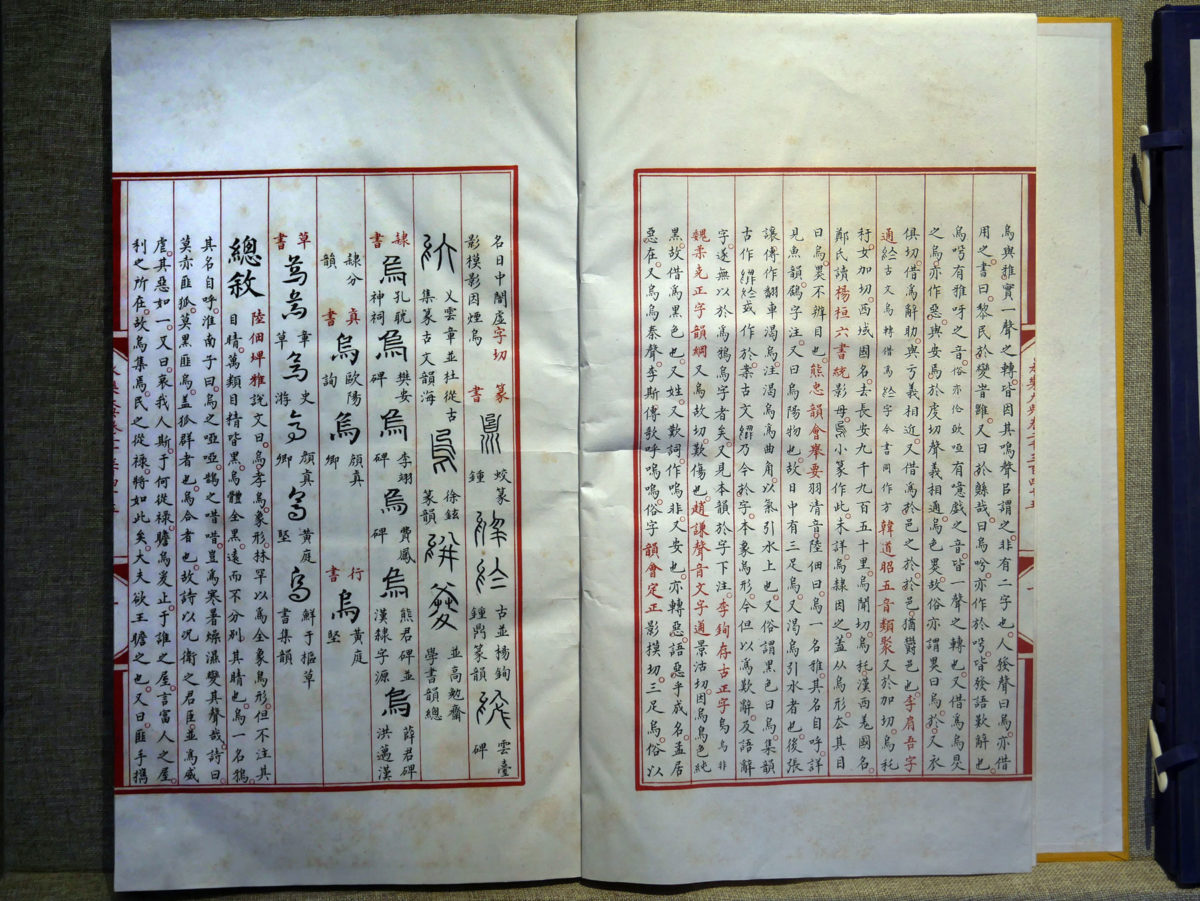 烏與雅實一聲之轉皆因其鳴聲㠯謂之非有二字也人發聲曰烏亦借
用之書曰黎民於變旹雝又曰於鯀哉曰烏呼亦作於呼皆發語歎辭也
烏呼有雅呀之音俗亦作哑有噫戲之音皆一聲之轉也又借為烏
之烏亦作惡與安焉於虔切聲義相通烏色異故俗亦謂異曰烏於又衣
俱切借為辭助與亏義相近又借為於邑之於於邑猶鬱邑也李肩吾字
通古文烏轉借為字今書同作方韓道昭五音類聚又於加切烏秅
女加切西域國名去長安九千九百五十里烏閒切烏秅漢西羌國名
鄭氏讀楊桓六書統影母小篆作此未詳烏隸因之蓋从鳥形去其目
曰烏異不辨目也熊忠韻會舉要羽清音陸佃曰烏一名雅其名自呼詳
見魚韻鵶字注又曰烏陽物也故日中有三足烏又渴烏引水者也後張
讓傳作翻車渴烏注渴烏為曲角以氣引水上也又俗謂黑色曰烏集韻
古作或作於古文乃今於字本象烏形今但以為歎辭及語辭
字遂無以於為鴉烏字者矣又見本韻於字下注李銁存古正字烏非
魏柔克正字韻綱又烏故切歎傷也趙謙聲音文字通景沽切因烏烏色純
黑故借為黑色也又姓又歎詞作嗚非又安也亦轉惡語惡乎成名孟居
惡在又烏烏秦聲李斯傳歌呼嗚嗚俗字韻會定正影模切三足烏俗以
名日中闇虛字切
影模影因煙烏
篆書
蛟篆鍾
古並楊鉤鍾鼎篆韻
雲臺碑
乂雲章並杜從古集篆古文韻海
徐鉉篆韻
並高勉齋學書韻總
隸書
烏孔耽神祠
烏樊安碑
烏李翊碑
烏費鳳碑
烏熊君碑並漢隸字源
烏薛君碑洪邁漢隸分韻
真書
烏歐陽詢
烏顏真卿
行書
烏黃庭堅
草書
烏烏章草
烏史游
烏顏真卿
烏黃庭堅
烏鮮于樞草書集韻
總敘
陸佃埤雅說文曰烏孝烏象形林罕以為全象烏形但不注其
目睛萬類目睛皆黑烏體全黑遠而不分別其睛也烏一名鵶
其名自呼淮南子曰烏之啞啞鵲之唶唶豈為寒暑燥濕變其聲哉詩曰
莫赤匪狐莫黑匪烏蓋狐群者也烏合者也故詩以況衛之君臣並為威
虐其惡如一又曰哀我人斯于何從祿瞻烏爰止于誰之屋言富人之屋
利之所在故烏集焉民之從祿特如此矣大夫欲王瞻之也又曰匪手攜